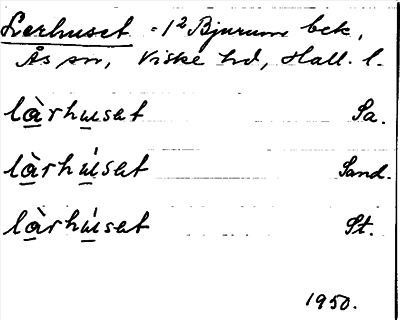 Lerhuset - 1² Bjurums bek,
Ås sn, Viske hd, Hall. l.
làrhusat Sa.
làrhúsat Sand.
làrhúsat St.
1950.